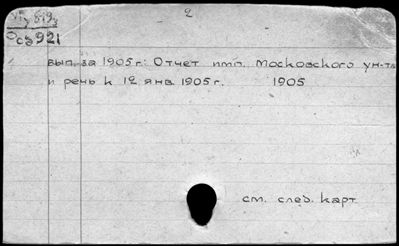 2
921
вып. за 1905 г.: Отчет имп. Московского ун-та
и речь к 12 янв 1905 г. 1905
см. след. карт